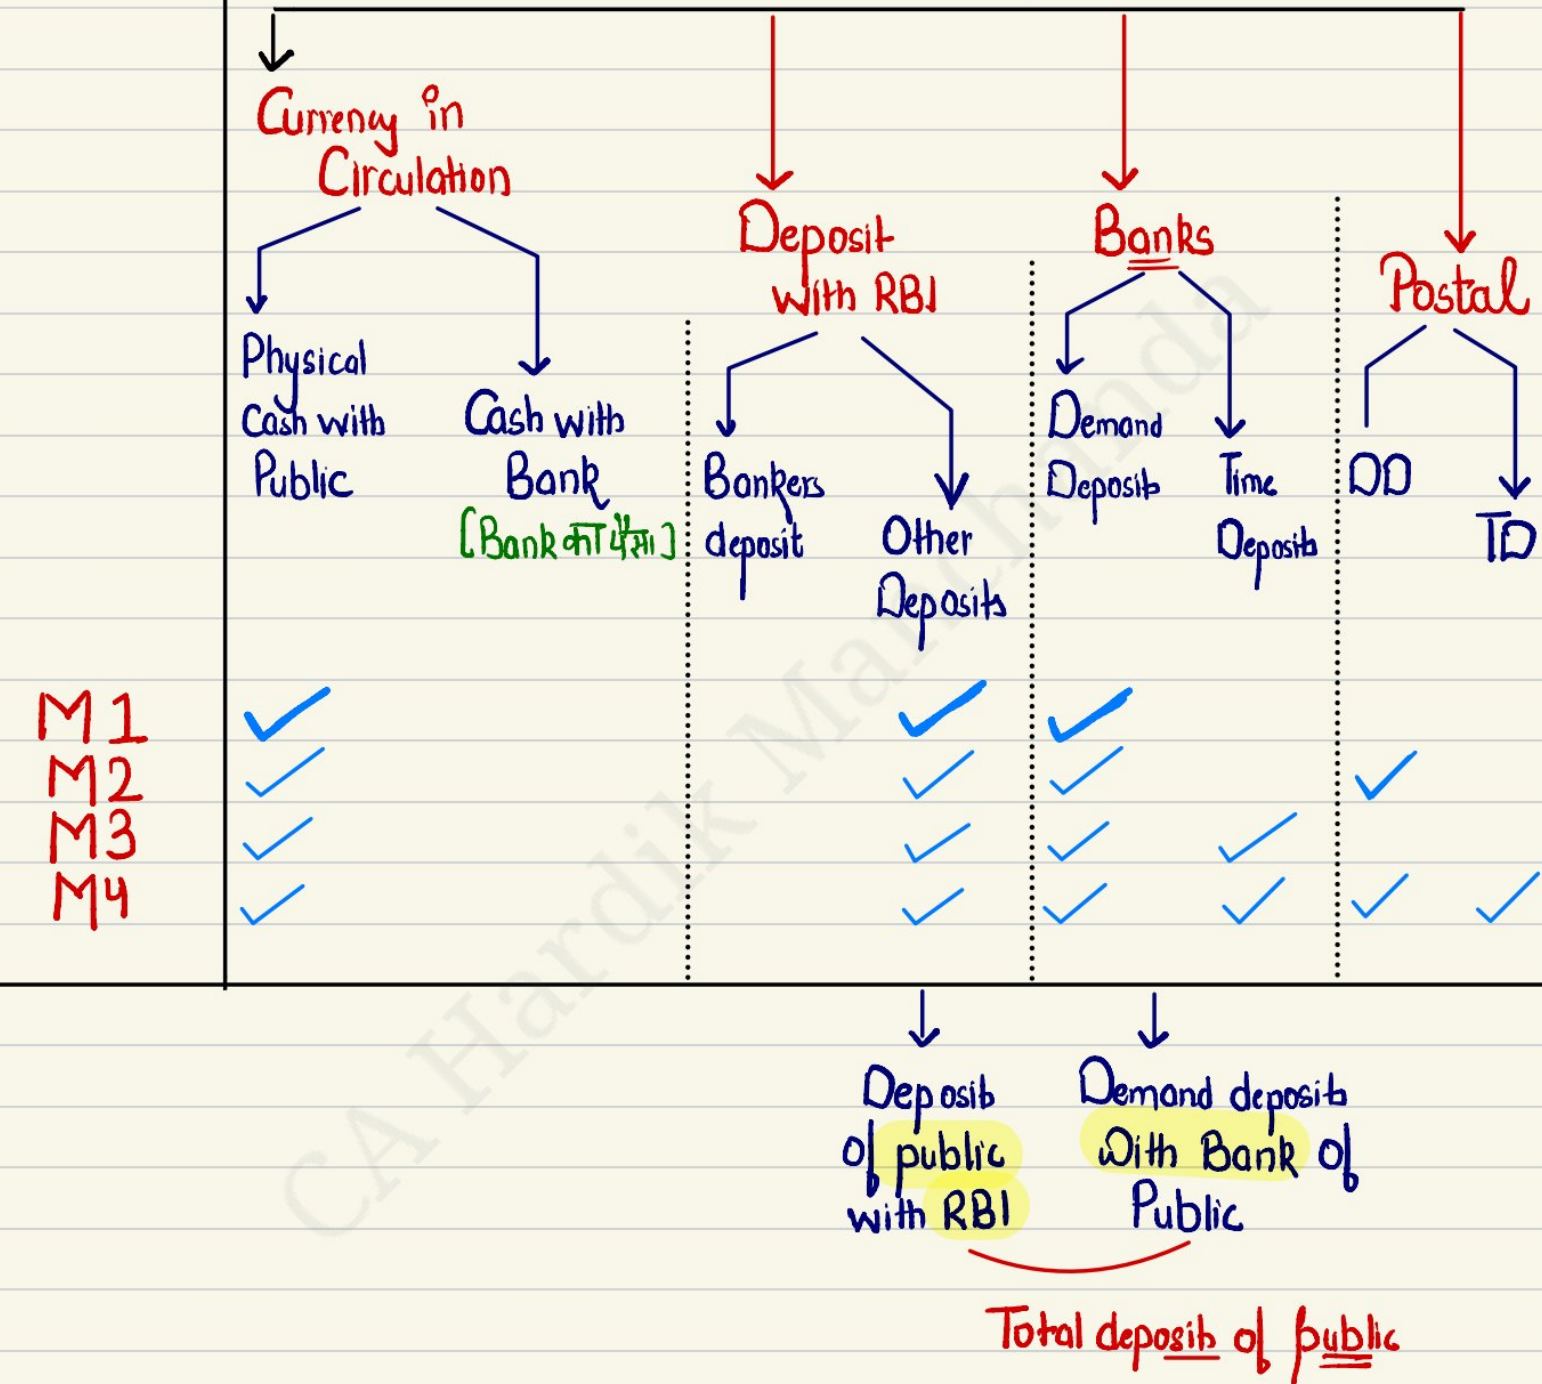 Currency in
Circulation
Physical
Cash with
Public
Cash with
Bank
[Bank का पैसा]
Deposit
with RBI
Bankers
deposit
Other
Deposits
Banks
Demand
Deposits
Time
Deposits
Postal
DD
TD
M1
M2
M3
M4
Deposits
of public
with RBI
Demand deposits
With Bank of
Public
Total deposits of public
CA Hardik Manchanda